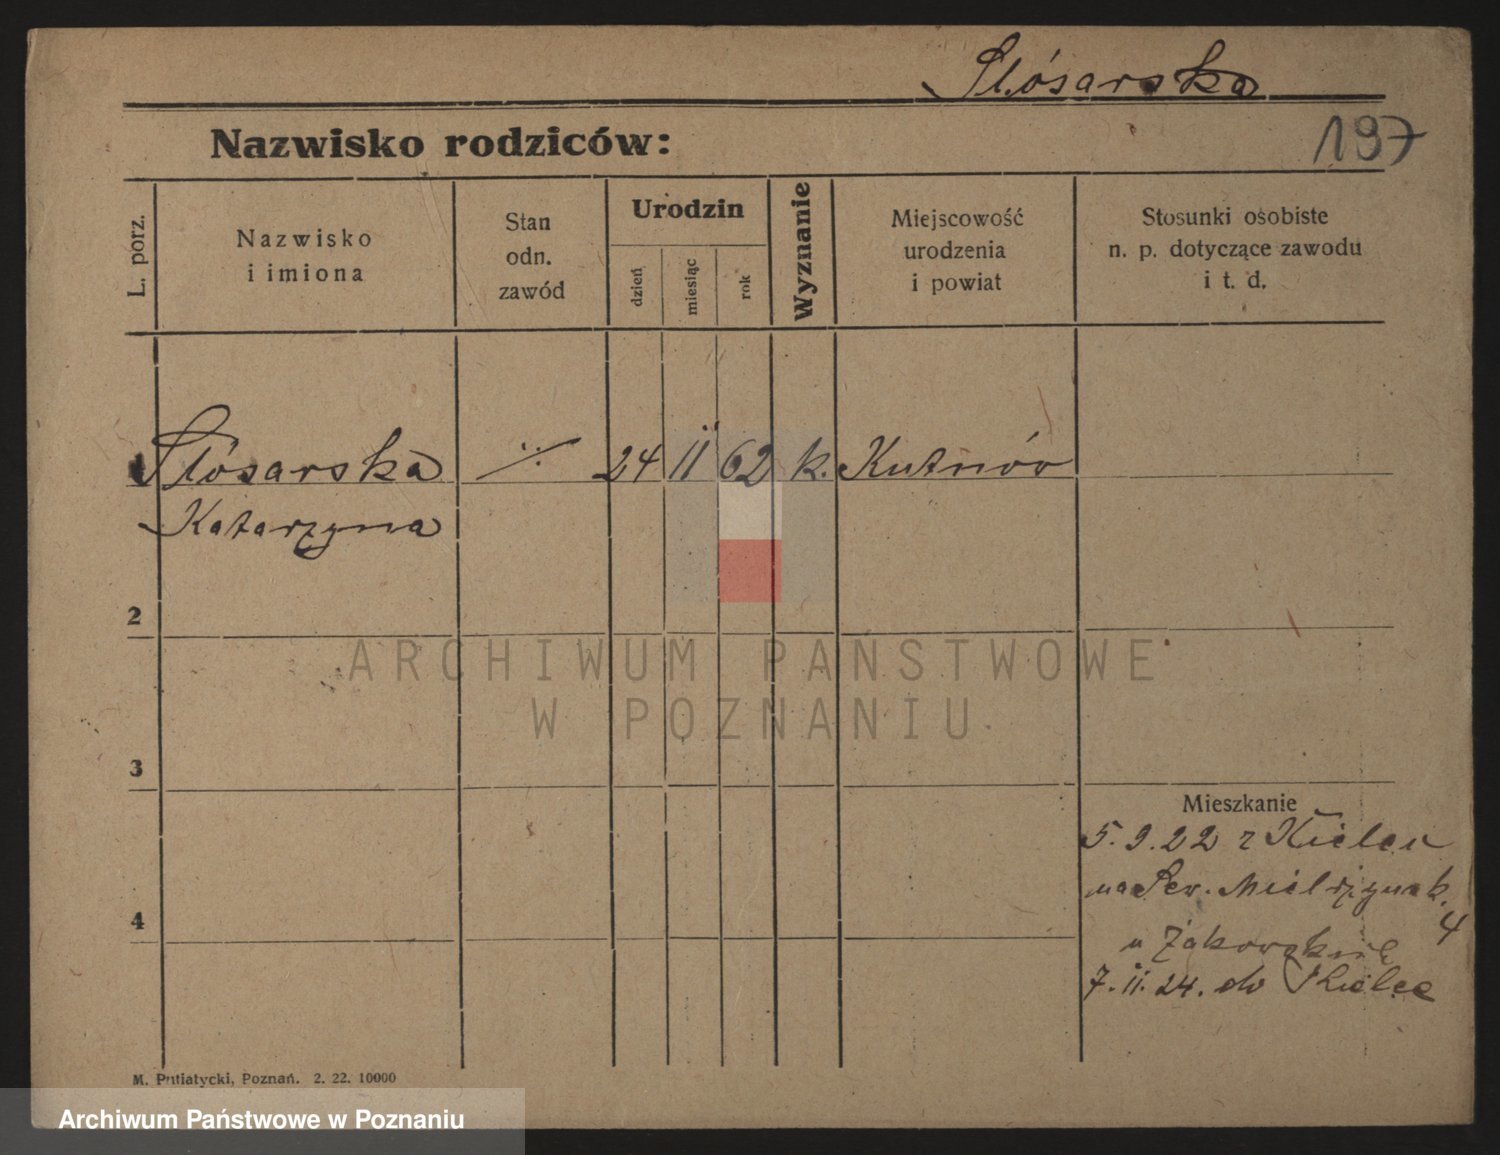 Slósarska
Nazwisko rodziców:
197
L. porz.
Nazwisko
i imiona
Stan
odn.
zawód
Urodzin
dzień
miesiąc
rok
Wyznanie
Miejscowość
urodzenia
i powiat
Stosunki osobiste
n. p. dotyczące zawodu
i t. d.
Slósarska 24 11 62 k. Kutnów
Katarzyna
2
3
4
Mieszkanie
5.9.22 z Kielc
na
4
u
7.11.24. do Kielce
M. Putiatycki, Poznań. 2. 22. 10000
ARCHIWUM PAŃSTWOWE
W POZNANIU
Archiwum Państwowe w Poznaniu